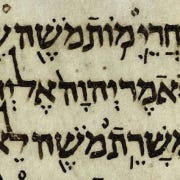 חֲרֵי מוֹת מֹשֶׁה
יֹּאמֶר יְהוָה אֶל יְה
מְשָׁרֵת מֹשֶׁה לֵא